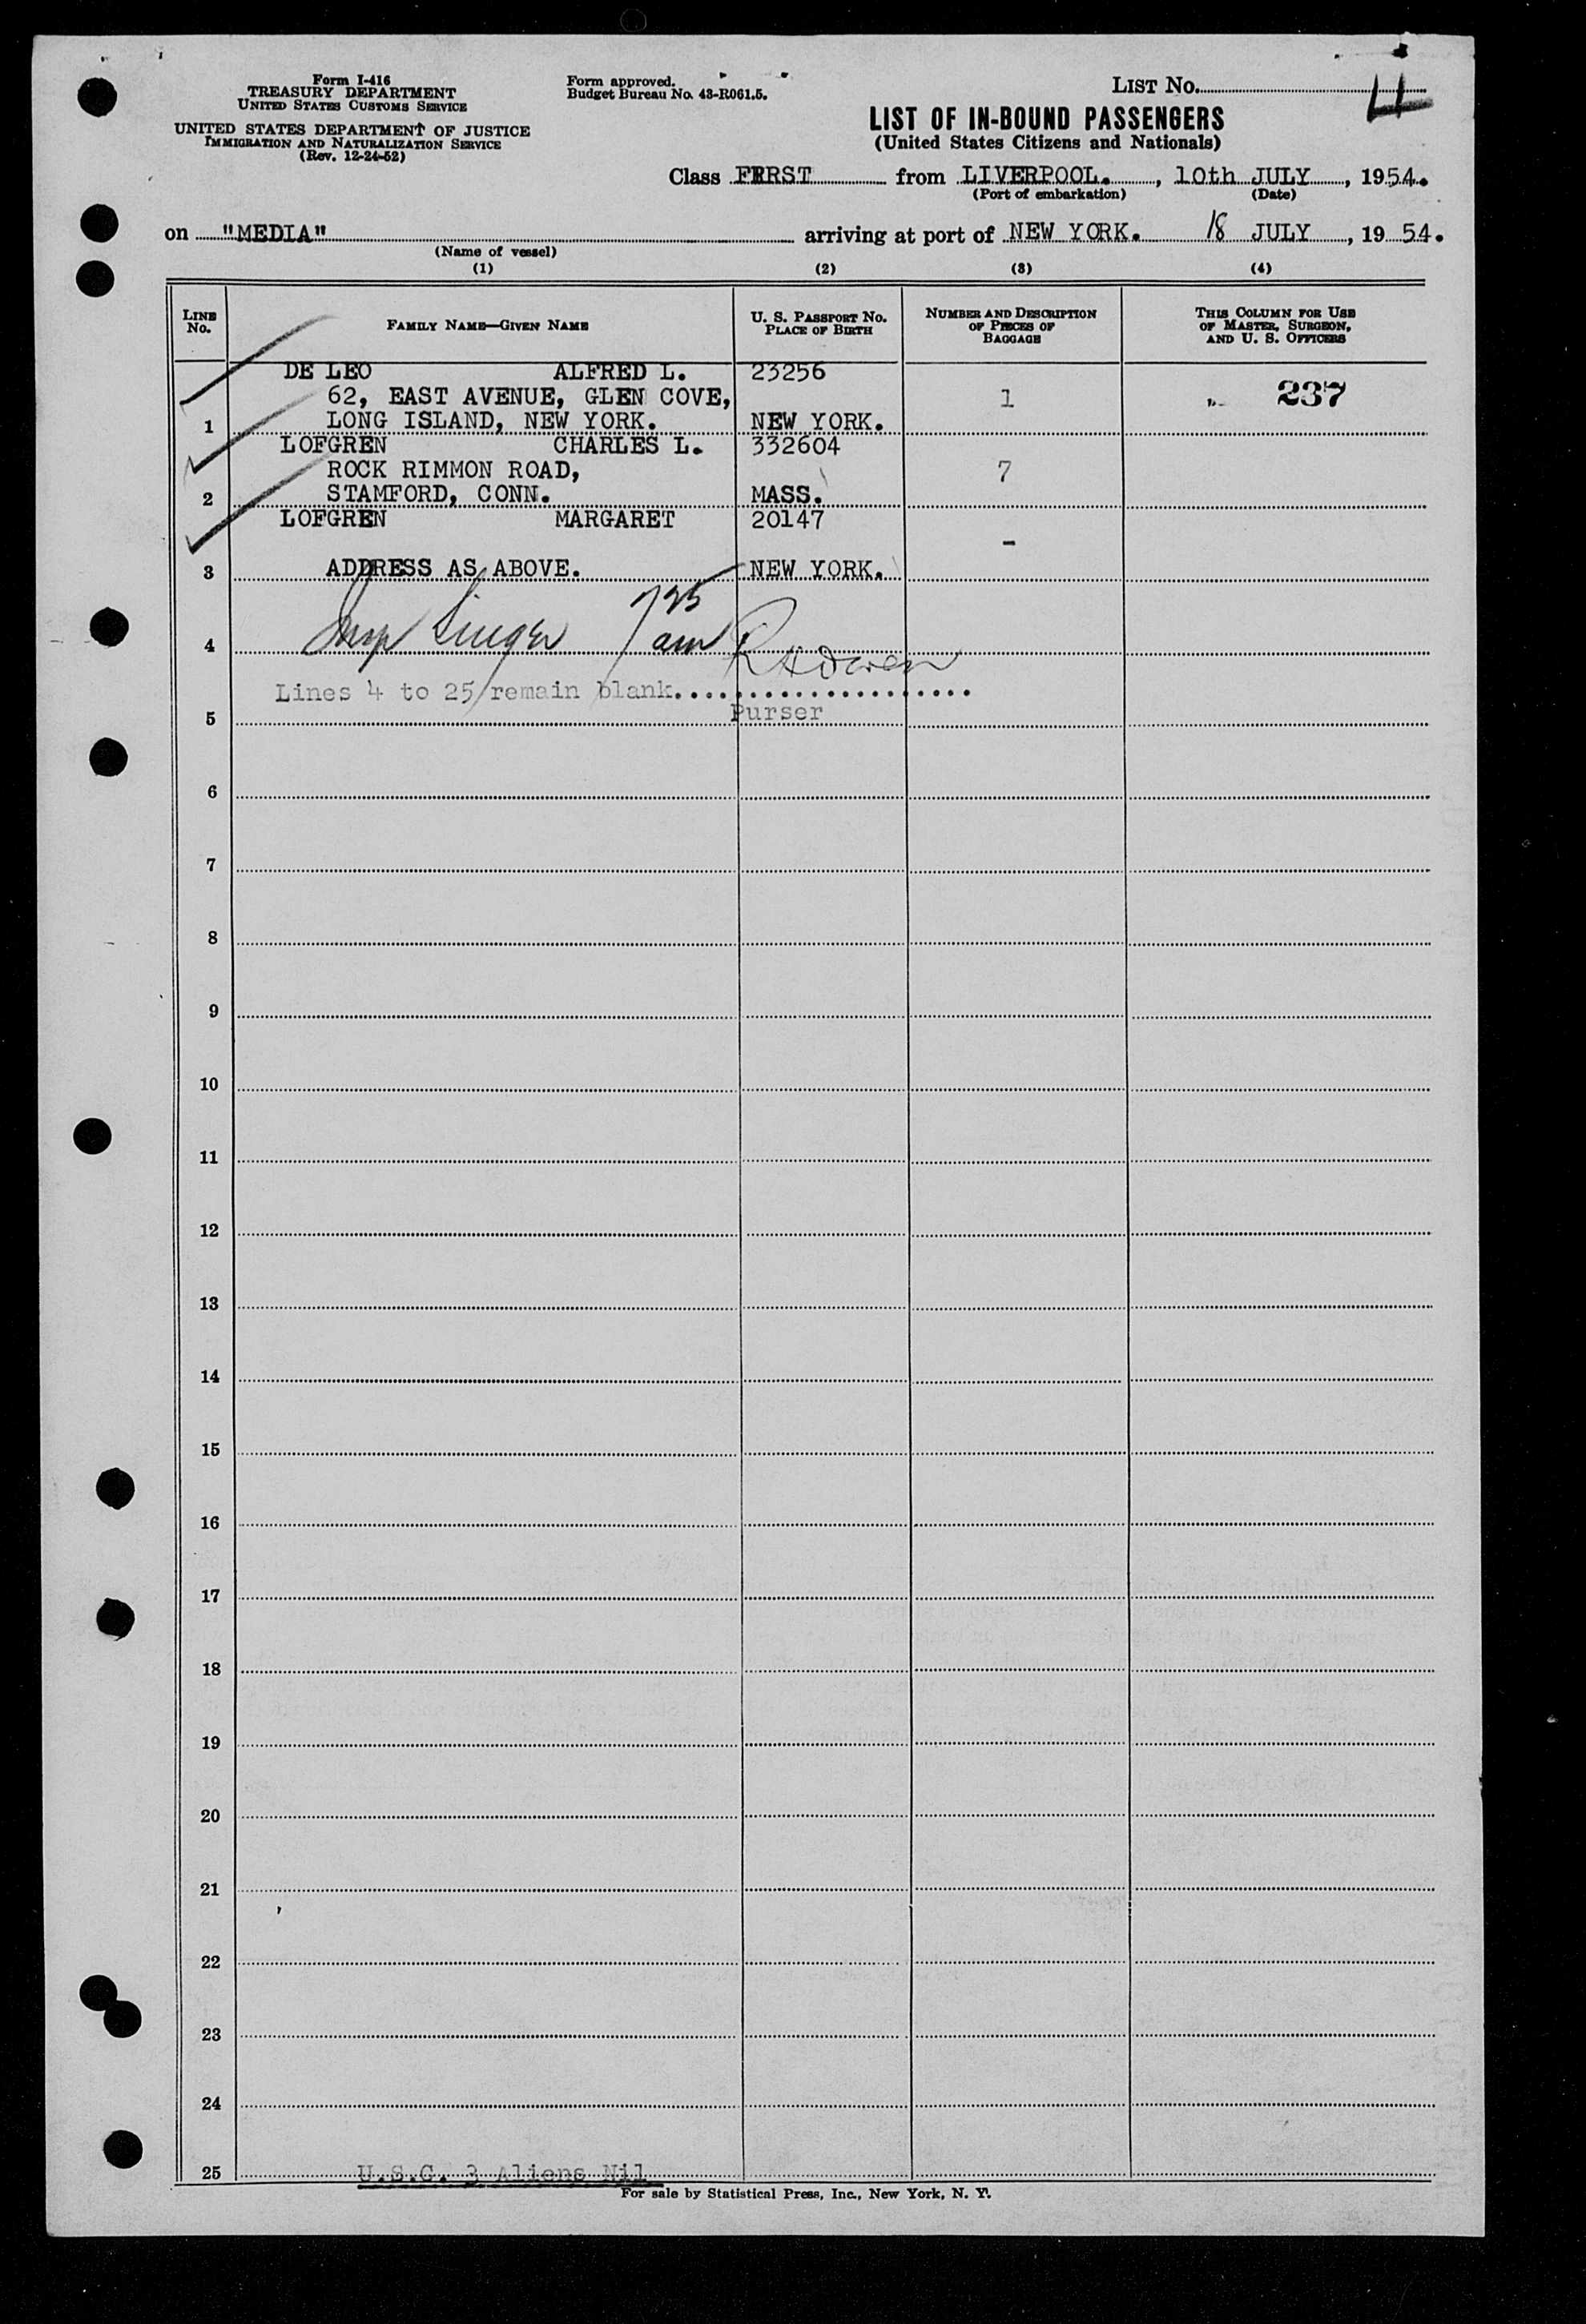 Form I-416
TREASURY DEPARTMENT
UNITED STATES CUSTOMS SERVICE
UNITED STATES DEPARTMENT OF JUSTICE
IMMIGRATION AND NATURALIZATION SERVICE
(Rev. 12-24-52)
Form approved.
Budget Bureau No. 43-R061.5.
LIST No. 4
LIST OF IN-BOUND PASSENGERS
(United States Citizens and Nationals)
Class FIRST from LIVERPOOL., 10th JULY, 1954.
(Port of embarkation) (Date)
on "MEDIA" arriving at port of NEW YORK. 18 JULY, 1954.
(Name of vessel)
(1) (2) (3) (4)
LINE No. FAMILY NAME—GIVEN NAME U. S. PASSPORT NO. PLACE OF BIRTH NUMBER AND DESCRIPTION OF PIECES OF BAGGAGE THIS COLUMN FOR USE OF MASTER, SURGEON, AND U. S. OFFICERS
DE LEO ALFRED L. 23256
62, EAST AVENUE, GLEN COVE, 1 237
1 LONG ISLAND, NEW YORK. NEW YORK.
LOFGREN CHARLES L. 332604
ROCK RIMMON ROAD, 7
2 STAMFORD, CONN. MASS.
LOFGREN MARGARET 20147
-
3 ADDRESS AS ABOVE. NEW YORK.
725
4 Insp Singer am
Lines 4 to 25 remain blank....................
5 Purser
6
7
8
9
10
11
12
13
14
15
16
17
18
19
20
21
22
23
24
25 U.S.C. 3 Aliens Nil
For sale by Statistical Press, Inc., New York, N. Y.